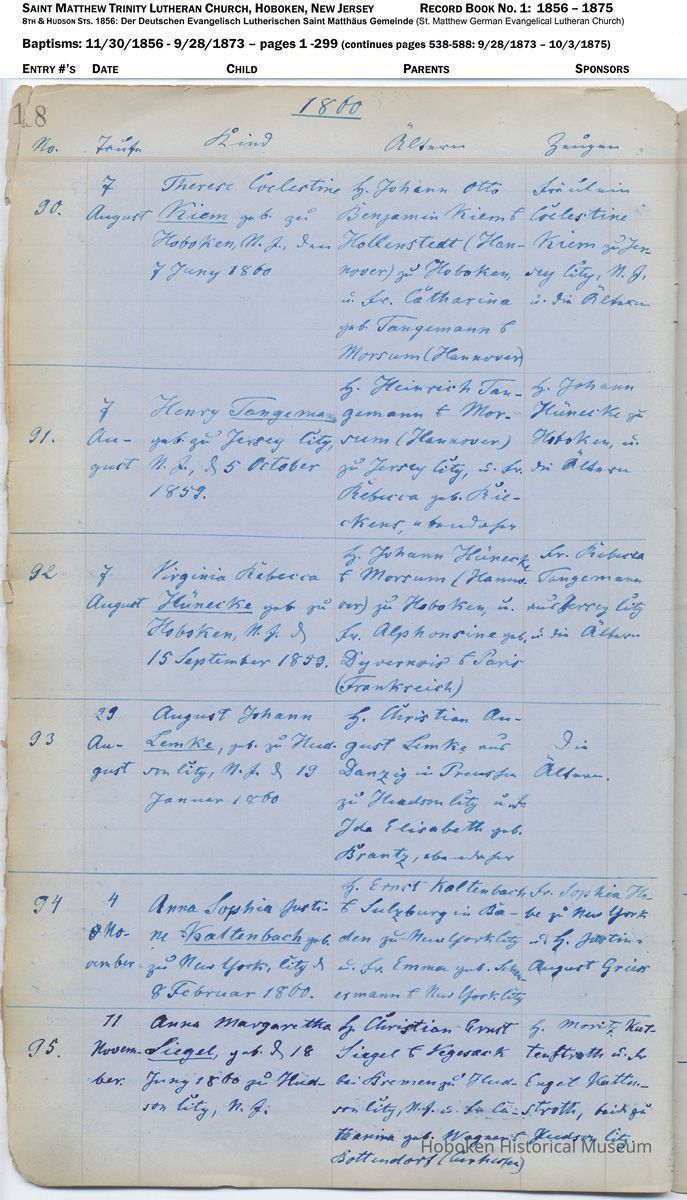 SAINT MATTHEW TRINITY LUTHERAN CHURCH, HOBOKEN, NEW JERSEY RECORD BOOK NO. 1: 1856 – 1875
8TH & HUDSON STS. 1856: Der Deutschen Evangelisch Lutherischen Saint Matthäus Gemeinde (St. Matthew German Evangelical Lutheran Church)
Baptisms: 11/30/1856 - 9/28/1873 – pages 1 -299 (continues pages 538-588: 9/28/1873 – 10/3/1875)
ENTRY #'S DATE CHILD PARENTS SPONSORS
18
1860
No. Taufe Kind Ältern Zeugen
90.
7
August
Therese Coelestine
Kiem geb. zu
Hoboken, N. J., den
7 Juny 1860
H. Johann Otto
Benjamin Kiem
Hollenstedt (Han-
nover) zu Hoboken,
u. Fr. Catharina
geb. Tangemann
Morsum (Hannover)
Fräulein
Coelestine
Kiem zu Jer-
sey City, N. J.
u. die Ältern
91.
7
Au-
gust
Henry Tangemann
geb. zu Jersey City,
N. J., d 5 October
1859.
H. Heinrich Tan-
gemann Mor-
sum (Hannover)
zu Jersey City, u. Fr.
Rebecca geb. Rie-
ckens, ebendaher
H. Johann
Hünecke zu
Hoboken, u.
die Ältern
92
7
August
Virginia Rebecca
Hünecke geb. zu
Hoboken, N. J. d
15 September 1859.
H. Johann Hünecke
Morsum (Hanno-
ver) zu Hoboken, u.
Fr. Alphonsine geb.
Dyvernois Paris
(Frankreich)
Fr. Rebecca
Tangemann
aus Jersey City
u. die Ältern
93
29
Au-
gust
August Johann
Lemke, geb. zu Hud-
son City, N. J. d 19
Januar 1860
H. Christian Au-
gust Lemke aus
Danzig in Preussen
zu Hudson City u. Fr.
Ida Elisabeth geb.
Brantz, ebendaher
Die
Ältern.
94
4
No-
vember
Anna Sophia Justi-
ne Kaltenbach geb.
zu New York, City d
8 Februar 1860.
H. Ernst Kaltenbach
Sulzburg in Ba-
den zu New York City
u. Fr. Emma geb.
New York City
Fr. Sophia
zu New York
u. H. Justin
August
95.
11
Novem-
ber.
Anna Margaretha
Siegel, geb. d 18
Juny 1860 zu Hud-
son City, N. J.
H. Christian Ernst
Siegel Vegesack
bei Bremen zu Hud-
son City, N. J. u. Fr.
geb. Wagner
Bottendorf
H. Moritz
u. Fr.
Hudson City
Hoboken Historical Museum